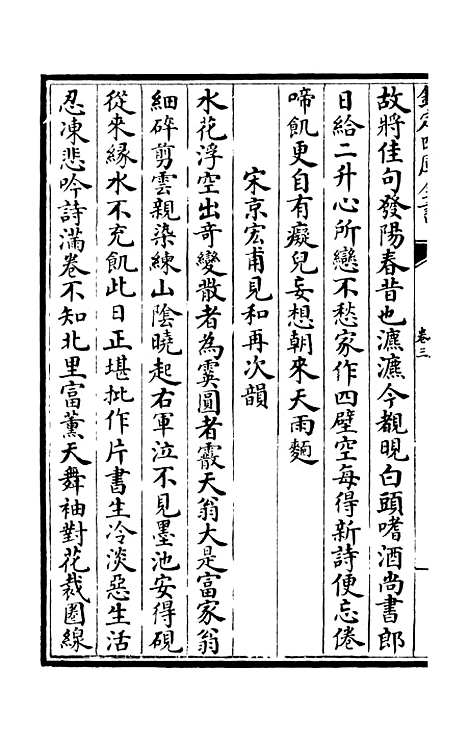 欽定四庫全書
卷三
故將佳句發陽春昔也瀌瀌今覩晛白頭嗜酒尚書郎
日給二升心所戀不愁家作四壁空每得新詩便忘倦
啼飢更自有癡兒妄想朝來天雨麵
宋京宏甫見和再次韻
水花浮空出竒變散者為霙圓者霰天翁大是富家翁
細碎剪雲親染練山陰曉起右軍泣不見墨池安得硯
從來緣水不充飢此日正堪批作片書生冷淡惡生活
忍凍悲吟詩滿卷不知北里富薰天舞袖對花裁圈線